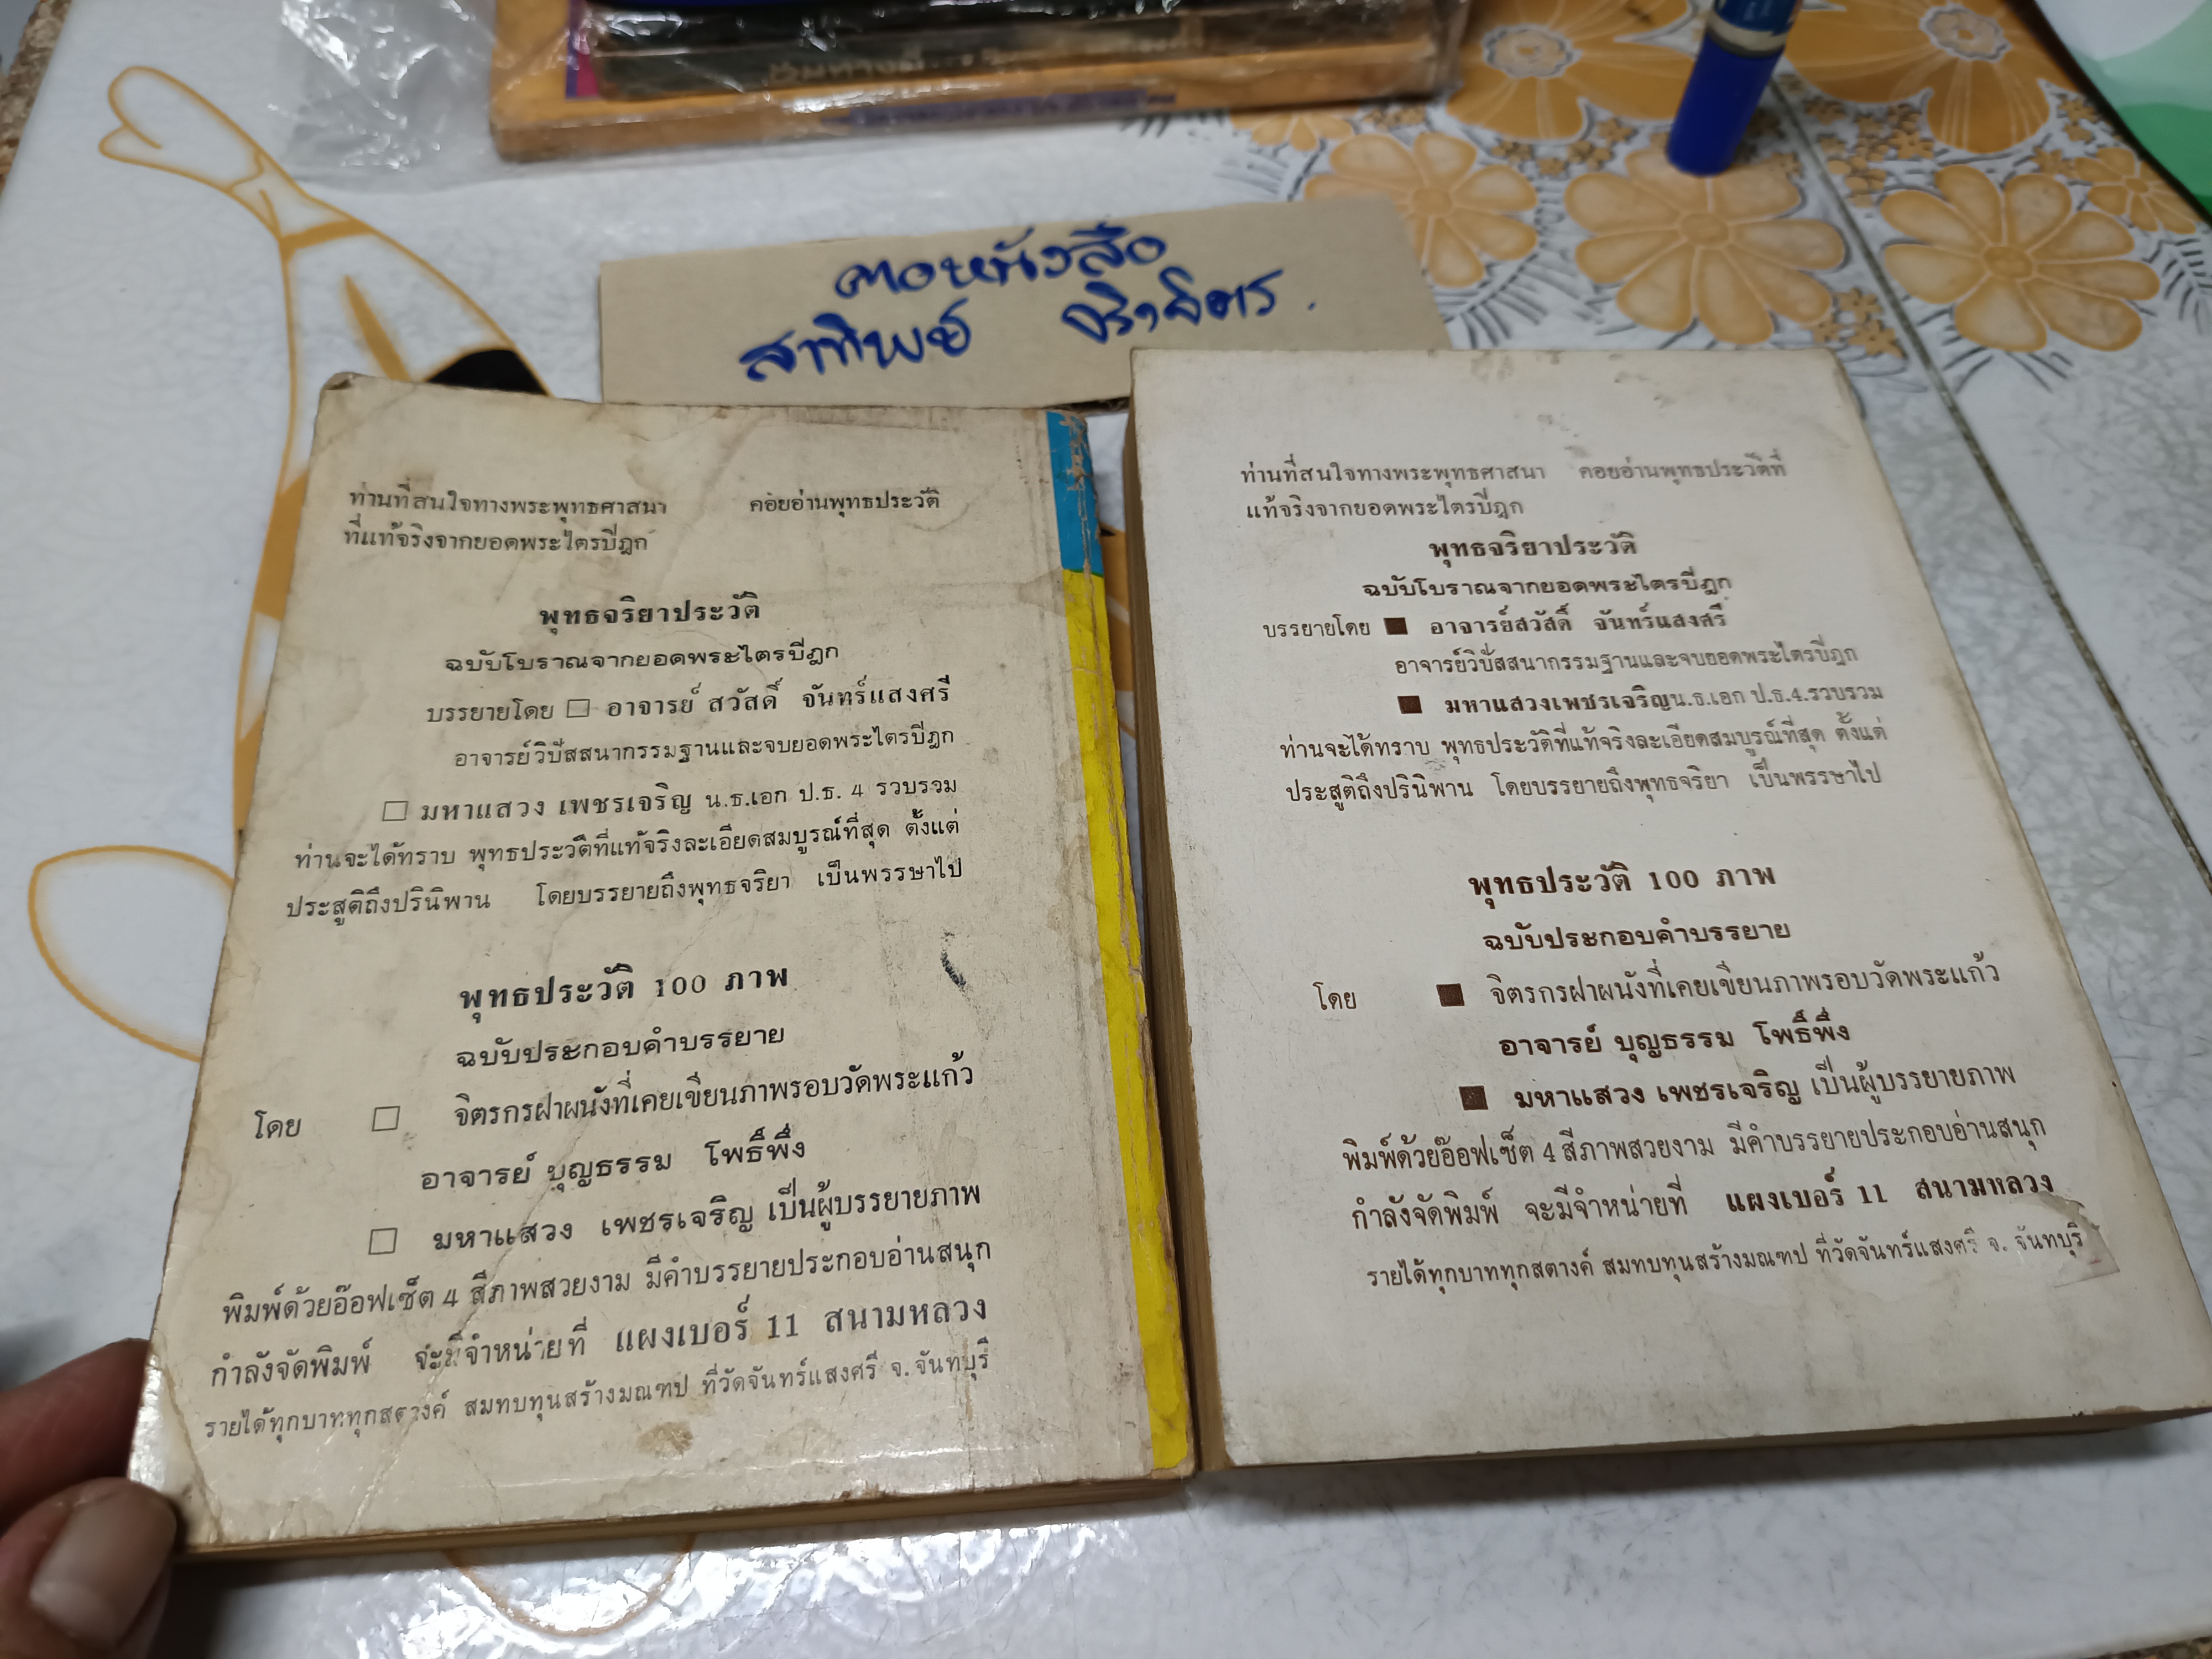 คอหนังสือ
สาทิพย์ จิราจิตร.
ท่านที่สนใจทางพระพุทธศาสนา คอยอ่านพุทธประวัติ
ที่แท้จริงจากยอดพระไตรปีฎก
พุทธจริยาประวัติ
ฉบับโบราณจากยอดพระไตรปีฎก
บรรยายโดย □ อาจารย์ สวัสดิ์ จันทร์แสงศรี
อาจารย์วิปัสสนากรรมฐานและจบยอดพระไตรปีฎก
□ มหาแสวง เพชรเจริญ น.ธ.เอก ป.ธ. 4 รวบรวม
ท่านจะได้ทราบ พุทธประวัติที่แท้จริงละเอียดสมบูรณ์ที่สุด ตั้งแต่
ประสูติถึงปรินิพาน โดยบรรยายถึงพุทธจริยา เป็นพรรษาไป
พุทธประวัติ 100 ภาพ
ฉบับประกอบคำบรรยาย
โดย □ จิตรกรฝาผนังที่เคยเขียนภาพรอบวัดพระแก้ว
อาจารย์ บุญธรรม โพธิ์พึ่ง
□ มหาแสวง เพชรเจริญ เป็นผู้บรรยายภาพ
พิมพ์ด้วยอ๊อฟเซ็ต 4 สีภาพสวยงาม มีคำบรรยายประกอบอ่านสนุก
กำลังจัดพิมพ์ จะมีจำหน่ายที่ แผงเบอร์ 11 สนามหลวง
รายได้ทุกบาททุกสตางค์ สมทบทุนสร้างมณฑป ที่วัดจันทร์แสงศรี จ.จันทบุรี
ท่านที่สนใจทางพระพุทธศาสนา คอยอ่านพุทธประวัติที่
แท้จริงจากยอดพระไตรปีฎก
พุทธจริยาประวัติ
ฉบับโบราณจากยอดพระไตรปีฎก
บรรยายโดย ■ อาจารย์สวัสดิ์ จันทร์แสงศรี
อาจารย์วิปัสสนากรรมฐานและจบยอดพระไตรปีฎก
■ มหาแสวงเพชรเจริญน.ธ.เอก ป.ธ.4.รวบรวม
ท่านจะได้ทราบ พุทธประวัติที่แท้จริงละเอียดสมบูรณ์ที่สุด ตั้งแต่
ประสูติถึงปรินิพาน โดยบรรยายถึงพุทธจริยา เป็นพรรษาไป
พุทธประวัติ 100 ภาพ
ฉบับประกอบคำบรรยาย
โดย ■ จิตรกรฝาผนังที่เคยเขียนภาพรอบวัดพระแก้ว
อาจารย์ บุญธรรม โพธิ์พึ่ง
■ มหาแสวง เพชรเจริญ เป็นผู้บรรยายภาพ
พิมพ์ด้วยอ๊อฟเซ็ต 4 สีภาพสวยงาม มีคำบรรยายประกอบอ่านสนุก
กำลังจัดพิมพ์ จะมีจำหน่ายที่ แผงเบอร์ 11 สนามหลวง
รายได้ทุกบาททุกสตางค์ สมทบทุนสร้างมณฑป ที่วัดจันทร์แสงศรี จ. จันทบุรี